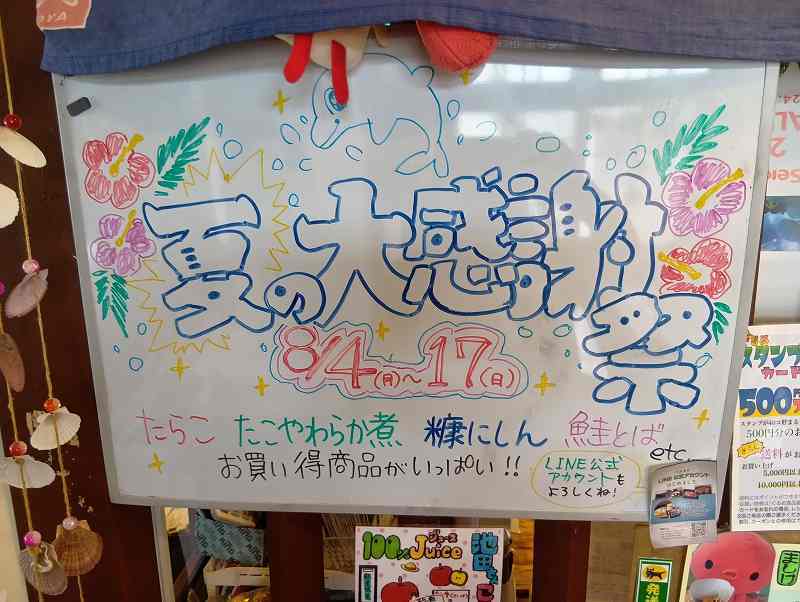 夏の大感謝祭
8/4(月)~17(日)
たらこ たこやわらか煮 糠にしん 鮭とば
etc.
お買い得商品がいっぱい!!
LINE公式
アカウントも
よろしくね!
スタンプ
カード
500円
500円分のお
送料がお
お買い上げ
5,000円以
10,000円以
100% ジュース
Juice